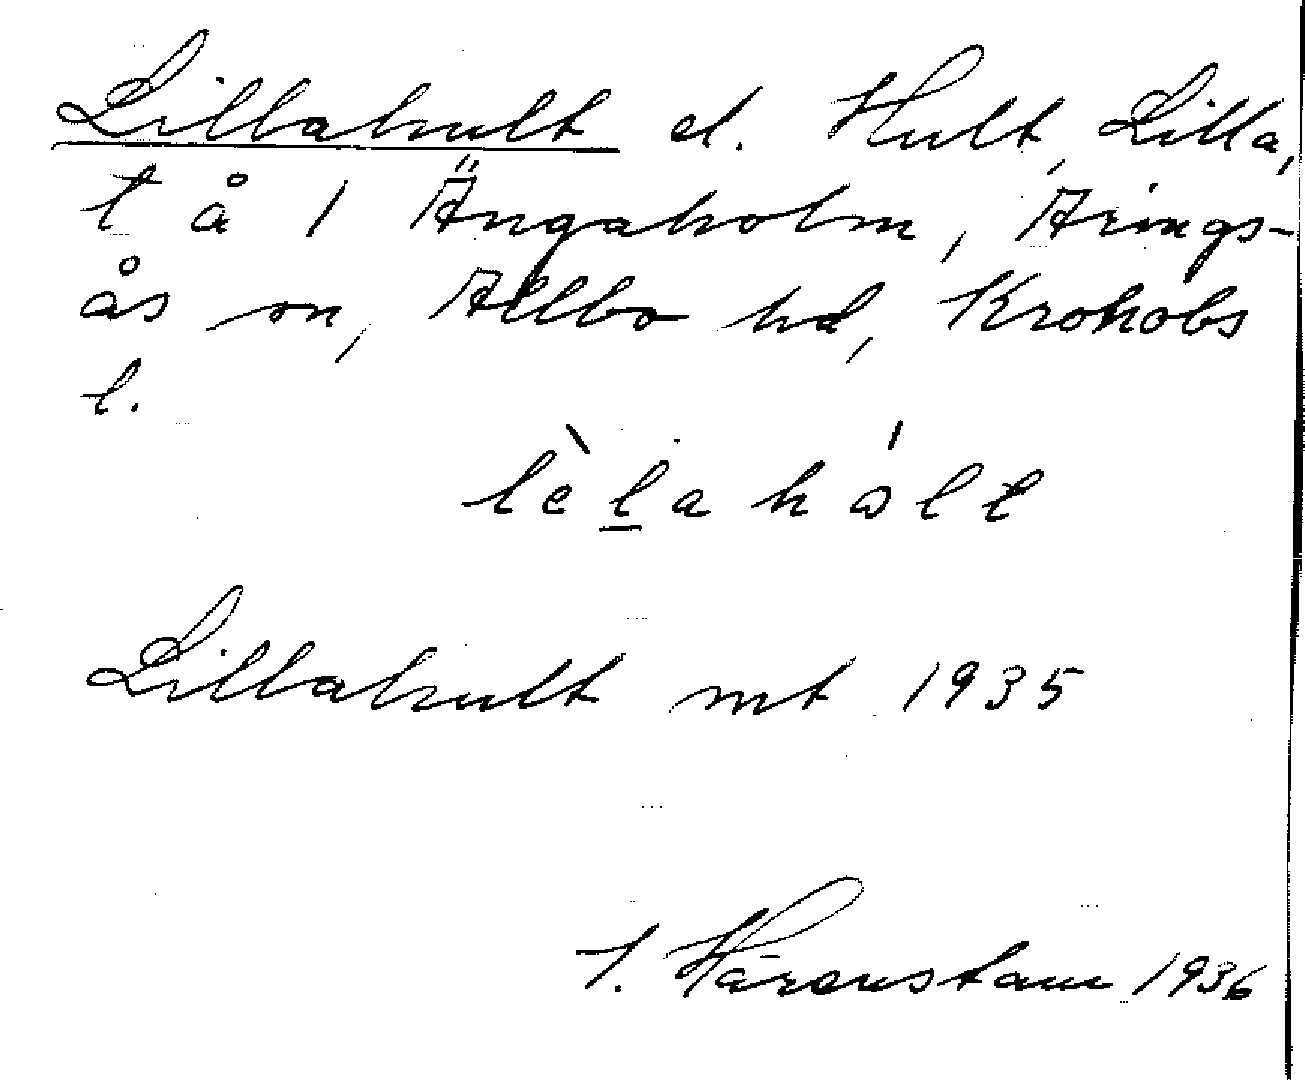 Lillahult el. Hult, Lilla,
t å 1 Ängaholm, Arings-
ås sn, Allbo hd, Kronobs
l.
lèlahált
Lillahult mt 1935
I. Härenstam 1936